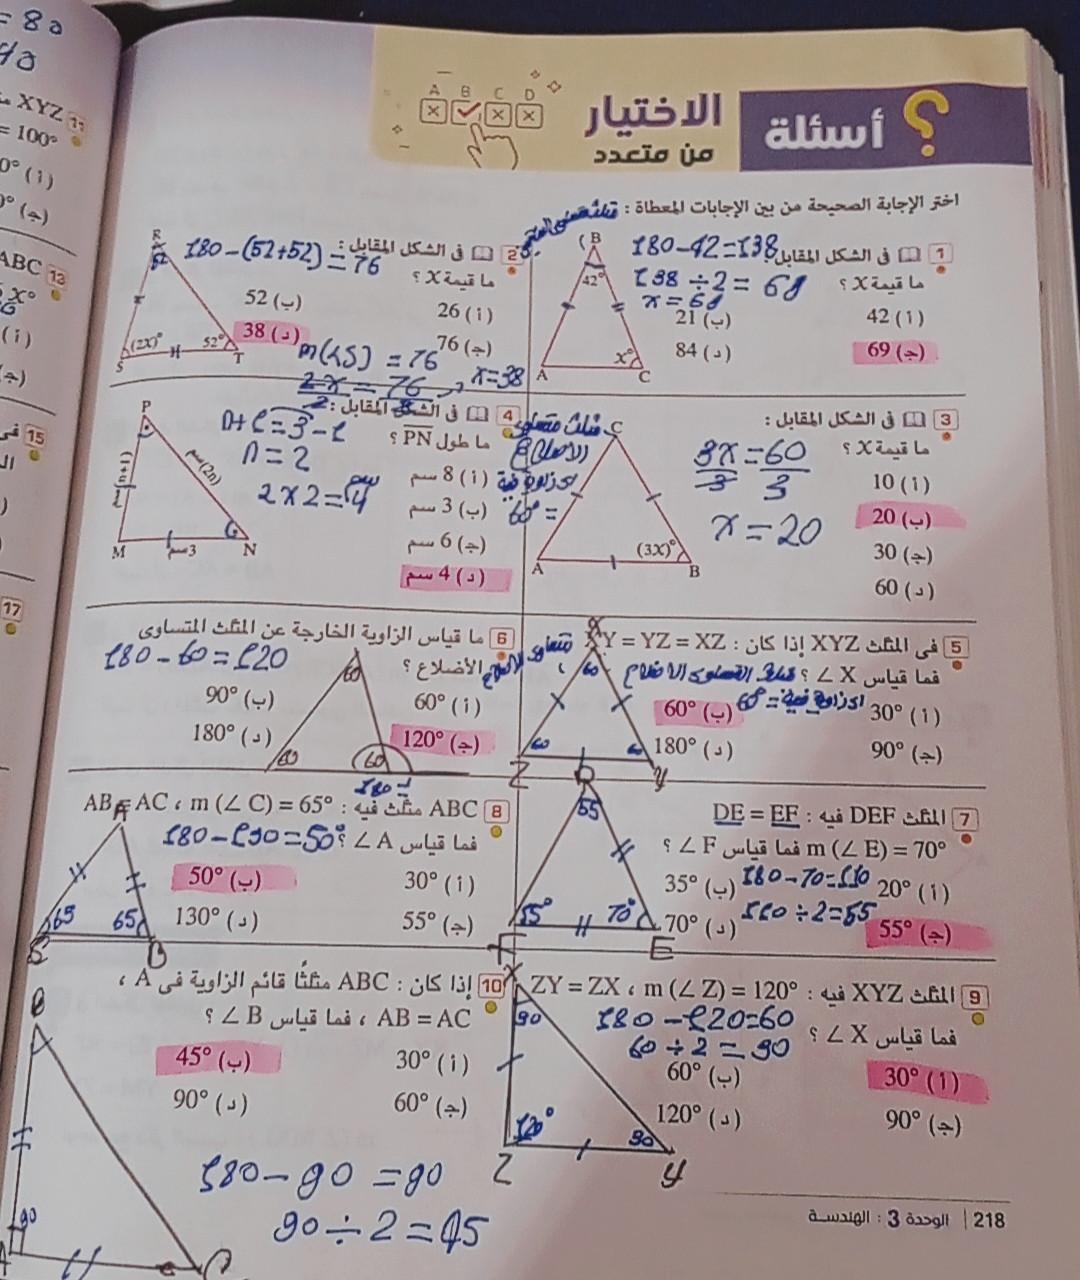 أسئلة
الاختيار
من متعدد
A B C D
اختر الإجابة الصحيحة من بين الإجابات المعطاة :
1 فى الشكل المقابل :
ما قيمة X ؟
(أ) 42
(ب) 21
(ج) 69
(د) 84
180-42=138
138÷2=69
x=69
B
42°
x°
A
C
2 فى الشكل المقابل :
ما قيمة X ؟
(أ) 26
(ب) 52
(ج) 76
(د) 38
180-(52+52)=76
m(∠S) = 76
2x = 76
x=38
R
52
(2X)°
52°
S
T
3 فى الشكل المقابل :
ما قيمة X ؟
(أ) 10
(ب) 20
(ج) 30
(د) 60
3x = 60
3 3
x = 20
C
(3X)°
A
B
4 فى الشكل المقابل :
ما طول PN ؟
(أ) 8 سم
(ب) 3 سم
(ج) 6 سم
(د) 4 سم
n+1=3-1
n = 2
2×2=4 سم
P
(n+1) سم
(2n) سم
M
3 سم
N
5 فى المثلث XYZ إذا كان : XY = YZ = XZ
فما قياس ∠ X ؟
(أ) 30°
(ب) 60°
(ج) 90°
(د) 180°
X
60
60
60
Z
Y
6 ما قياس الزاوية الخارجة عن المثلث المتساوى
الأضلاع ؟
(أ) 60°
(ب) 90°
(ج) 120°
(د) 180°
180-60=120
60
60
60
7 المثلث DEF فيه : DE = EF
m (∠ E) = 70° فما قياس ∠ F ؟
(أ) 20°
(ب) 35°
(ج) 55°
(د) 70°
180-70=110
110÷2=55
D
55
55°
70°
F
E
8 ABC مثلث فيه : AB = AC ، m (∠ C) = 65°
فما قياس ∠ A ؟
(أ) 30°
(ب) 50°
(ج) 55°
(د) 130°
180-130=50°
A
65
65
C
B
9 المثلث XYZ فيه : ZY = ZX ، m (∠ Z) = 120°
فما قياس ∠ X ؟
(أ) 30°
(ب) 60°
(ج) 90°
(د) 120°
180-120=60
60÷2=30
X
30
120°
30
Z
Y
10 إذا كان : ABC مثلثًا قائم الزاوية فى A ،
AB = AC ، فما قياس ∠ B ؟
(أ) 30°
(ب) 45°
(ج) 60°
(د) 90°
180-90=90
90÷2=45
B
90
A
C
218 | الوحدة 3 : الهندسة
= 80
40
11 XYZ
= 100°
(أ)
(ج)
13 ABC
X°
(أ)
15 فى
17